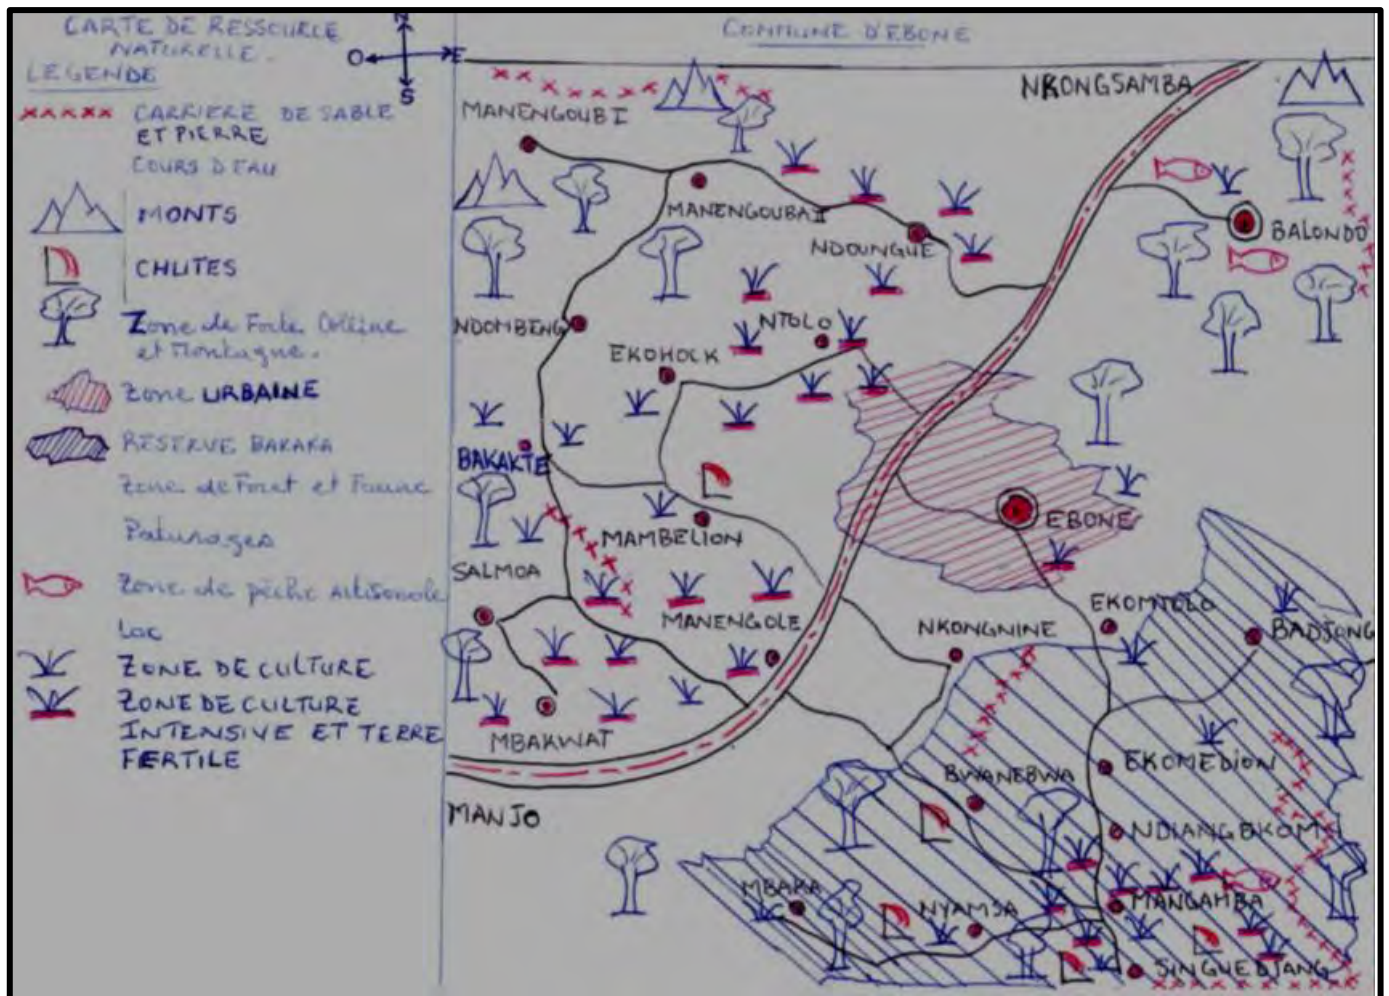 CARTE DE RESSOURCE
NATURELLE.
LEGENDE
CARRIERE DE SABLE
ET PIERRE
COURS D'EAU
MONTS
CHUTES
Zone de Forte Colline
et Montagne.
Zone URBAINE
RESERVE BAKAKA
Zone de Foret et Faune
Paturages
Zone de pêche Artisanale
Lac
ZONE DE CULTURE
ZONE DE CULTURE
INTENSIVE ET TERRE
FERTILE
N
O
E
S
COMMUNE D'EBONE
NKONGSAMBA
MANENGOUB I
MANENGOUBA II
NDOUNGUE
BALONDO
NDOMBENG
NTOLO
EKOHOCK
BAKAKTE
EBONE
MAMBELION
SALMOA
MANENGOLE
NKONGNINE
EKOMTOLO
BADJONG
MBAKWAT
MANJO
BWANEBWA
EKOMEDION
NDIANGEKOM
MBAKA
NYAMSA
MANGAMBA
SINGUEDJANG